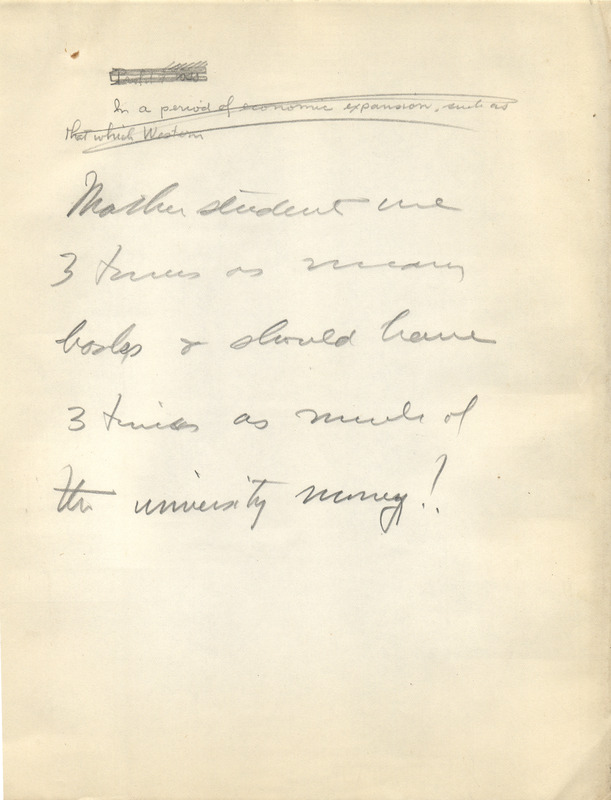 In a period of economic expansion, such as
that which Western
Mother student use
3 times as many
books & should have
3 times as much of
the university money!